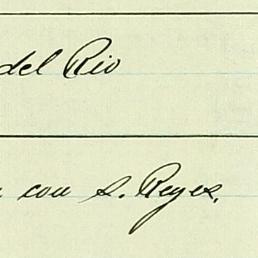 del Rio
con S. Reyes.